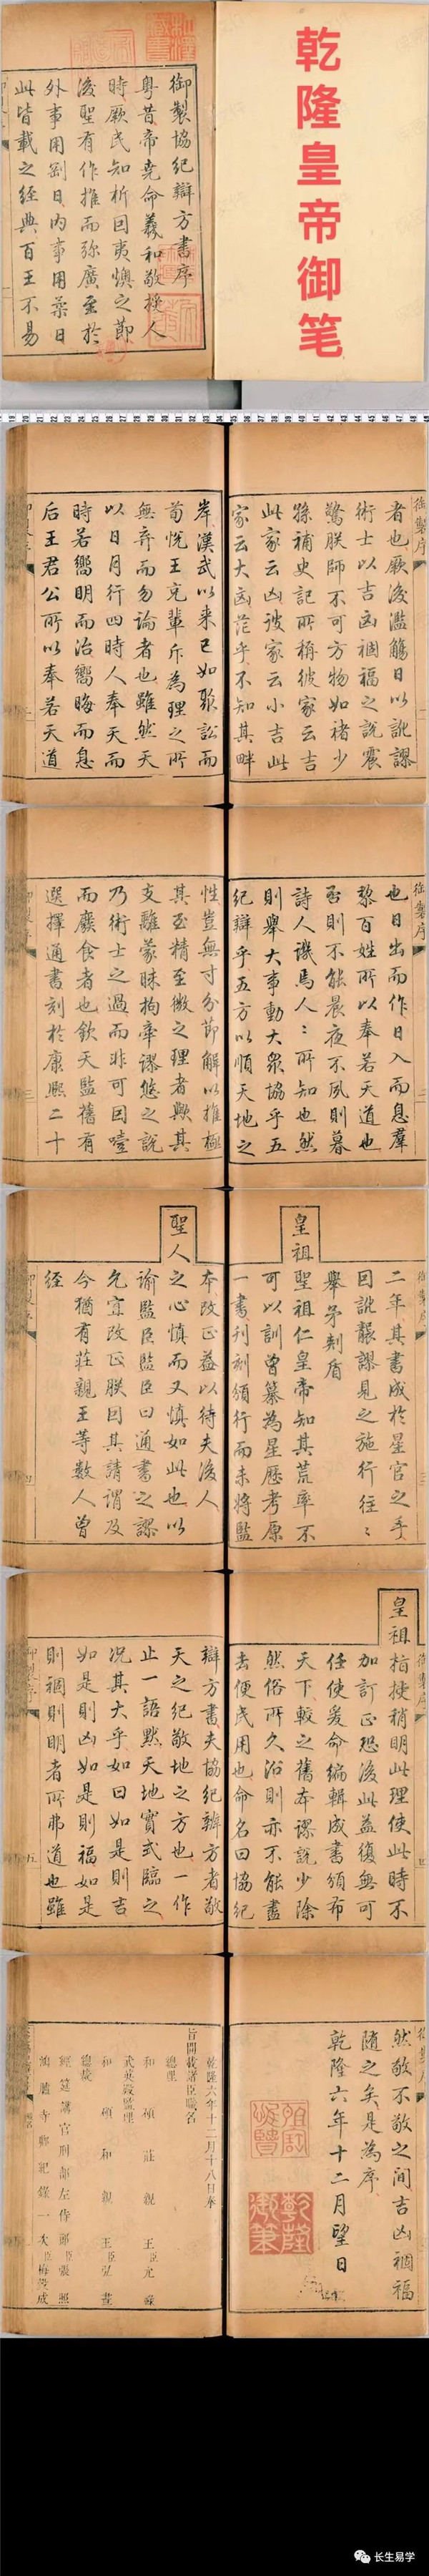 乾隆皇帝御笔
御製協紀辯方書序
粵昔帝堯命羲和敬授人
時厥民知析因夷燠之節
後聖有作推而弥廣至於
外事用剛日内事用柔日
此皆載之經典百王不易
御製序
者也厥後濫觴日以訛謬
術士以吉凶禍福之說震
驚朕師不可方物如褚少
孫補史記所稱彼家云吉
此家云凶彼家云小吉此
家云大凶茫乎不知其畔
岸漢武以来已如聚訟而
荀悅王充輩斥為理之所
無弃而勿論者也雖然天
以日月行四時人奉天而
時若嚮明而治嚮晦而息
后王君公所以奉若天道
御製序
也日出而作日入而息羣
黎百姓所以奉若天道也
否則不能晨夜不夙則暮
詩人譏焉人〻所知也然
則舉大事動大眾協乎五
紀辯乎五方以順天地之
性豈無寸分節解以推極
其至精至微之理者歟其
支離蒙昧拘牽謬悠之說
乃術士之過而非可因噎
而廢食者也欽天監舊有
選擇通書刻於康熙二十
御製序
二年其書成於星官之手
因訛襲謬見之施行往〻
舉矛刺盾
皇祖
聖祖仁皇帝知其荒率不
可以訓曾纂為星歷考原
一書刊刻頒行而未將監
本改正蓋以待夫後人
聖人之心慎而又慎如此也以
諭監臣監臣曰通書之謬
允宜改正朕因其請謂及
今猶有莊親王等數人曾
經
御製序
皇祖指授稍明此理使此時不
加訂正恐後此益復無可
任使爰命編輯成書頒布
天下較之舊本謬說少除
然俗所久沿則亦不能盡
去便民用也命名曰協紀
辯方書夫協紀辨方者敬
天之紀敬地之方也一作
止一語默天地實式臨之
况其大乎如曰如是則吉
如是則凶如是則福如是
則禍則明者所弗道也雖
然敬不敬之間吉凶禍福
隨之矣是為序
乾隆六年十二月望日
乾隆御筆
乾隆六年十二月十八日奉
旨開載諸臣職名
總理
和碩莊親王臣允祿
武英殿監理
和碩和親王臣弘晝
總裁
經筵講官刑部左侍郎臣張照
鴻臚寺卿紀錄一次臣梅瑴成
长生易学